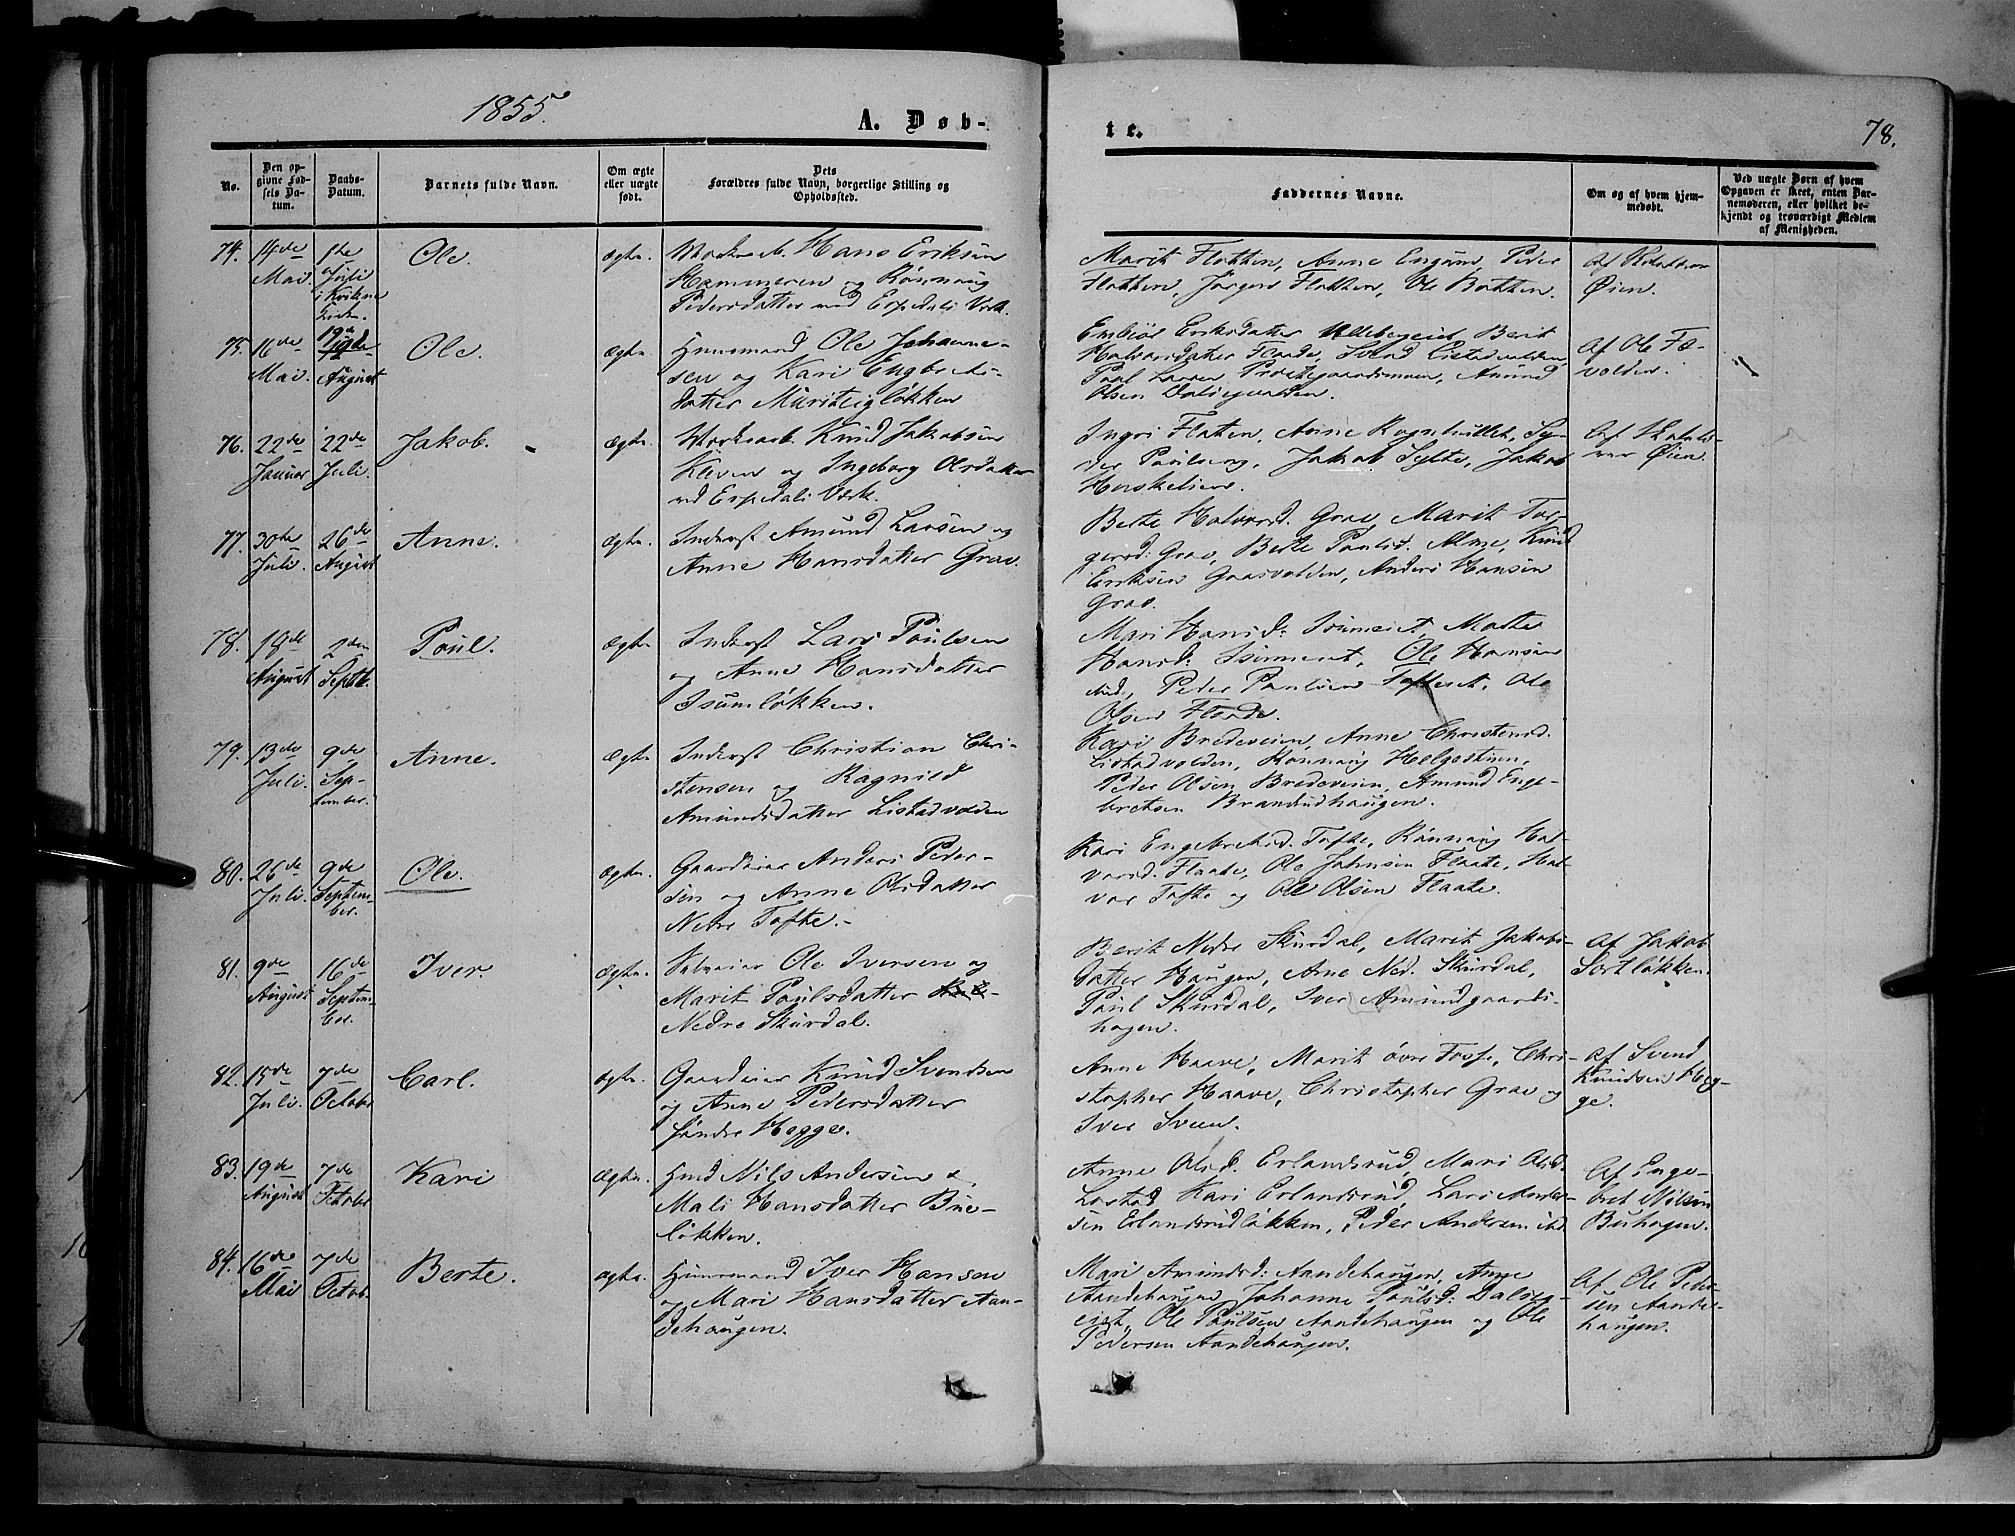 1855.
A. Døb-
te.
78.
No.
Den op-
givne Fød-
sels Da-
tum.
Daabs-
Datum.
Barnets fulde Navn.
Om ægte
eller uægte
født.
Dets
Forældres fulde Navn, borgerlige Stilling og
Opholdssted.
Faddernes Navne.
Om og af hvem hjem-
medøbt.
Ved uægte Børn af hvem
Opgaven er skeet, enten Bar-
nemoderen, eller hvilket be-
kjendt og troværdigt Medlem
af Menigheden.
74.
14de
Mai.
1ste
Juli
i Kvikne
Kirke.
Ole.
Ægte.
Hans Eriksen
Hammeren og Rønnaug
Pedersdatter ved Espedals Værk.
Marit Flatten, Anne Engum, Peder
Flatten, Jørgen Flatten, Ole Bakken.
Af
Øien.
75.
16de
Mai.
19de
August
Ole.
Ægte.
Huusmand Ole Johanne-
sen og Kari Engebrets-
datter Muriteigløkken
Eriksdatter Ulleberget Berit
Halvorsdatter Flaade, Svend
Paul Larsen Præstegaardsmoen, Amund
Olsen
Af Ole Fæ-
volden.
76.
22de
Januar
22de
Juli.
Jakob.
Ægte.
Knud Jakobsen
Kleven og Ingeborg Olsdatter
ved Espedals Værk.
Ingri Flatten, Anne
Jakob Sylte, Jakob
Af
Øien.
77.
30te
Juli.
26de
August
Anne.
Ægte.
Inderst Amund Larsen og
Anne Hansdatter Grav.
Berte Halvorsd. Grav, Marit Tor-
gersd: Grav, Berte Paulsd. Alme, Knud
Eriksen Gaasvolden, Anders Hansen
Grav.
78.
19de
August
2den
Septbr.
Poul.
Ægte.
Inderst Lars Poulsen
og Anne Hansdatter
Isumløkken.
Mari Hansd: Isumeiet, Mathe
Hansd: Isumeiet, Ole Hansen
ibid, Peder Paulsen Tofteeiet, Ole
Olsen Flaade.
79.
13de
Juli.
9de
Sep-
tember.
Anne.
Ægte.
Inderst Christian Chri-
stensen og Ragnild
Amundsdatter Listadvolden
Kari Bredeveien, Anne Christensd.
Listadvolden, Rønnaug Helgestuen,
Peder Olsen Bredeveien, Amund Enge-
bretsen Brandrudhaugen.
80.
26de
Juli.
9de
Septem-
ber.
Ole.
Ægte.
Gaardeier Anders Peder-
sen og Anne Olsdatter
Nedre Tofte.-
Kari Engebretsd. Tofte, Rønnaug Hal-
vorsd. Flaate, Ole Johnsen Flaate, Hal-
vor Tofte og Ole Olsen Flaate.
81.
9de
August
16de
Septem-
ber.
Iver.
Ægte.
Selveier Ole Iversen og
Marit Poulsdatter
Nedre Skurdal.
Berit Nedre Skurdal, Marit Jakobs-
datter Haugen, Arne Ned. Skurdal,
Paul Skurdal, Iver Amundgaards-
hagen.
Af Jakob
Sortløkken.
82.
15de
Juli.
7de
Octobr
Carl.
Ægte.
Gaardeier Knud Svendsen
og Anne Pedersdatter
Søndre Hegge.
Anne Haave, Marit øvre Tofte, Chri-
stopher Haave, Christopher Grav og
Iver Sveen.
Af Svend
Knudsen Heg-
ge.
83.
19de
August
7de
Octobr
Kari
Ægte.
Hmd Nils Andersen &
Mali Hansdatter Bue-
løkken.
Anne Olsd. Erlandsrud, Mari Olsd.
Lostad Kari Erlandsrud, Lars Ander-
sen Erlandsrudløkken, Peder Andersen ibd.
Af Enge-
bret Nilsen
Buhagen.
84.
16de
Mai
7de
Octobr.
Berte.
Ægte.
Huusmand Iver Hansen
og Mari Hansdatter Aan-
dehaugen.
Mari Amundsd: Aandehaugen, Anne
Aandehaugen Johanne Poulsd: Dalseg-
eiet, Ole Poulsen Aandehaugen og Ole
Pedersen Aandehaugen.
Af Ole Peder-
sen Aande-
haugen.